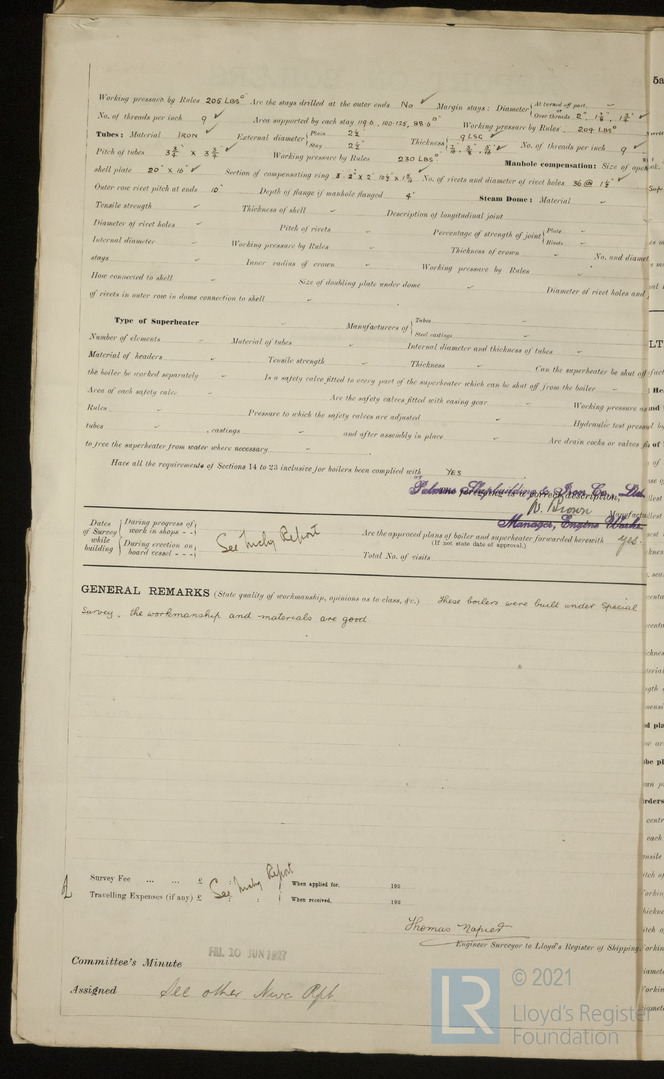 Working pressure by Rules 205 LBS□" Are the stays drilled at the outer ends No Margin stays: Diameter { At turned off part, Over threads 2", 1⅞",
No. of threads per inch 9 Area supported by each stay Working pressure by Rules 209 LBS□"
Tubes: Material IRON External diameter { Plain 2½" Stay 2½" Thickness { 9 LSG No. of threads per inch 9
Pitch of tubes 3¾" x 3¾" Working pressure by Rules 230 LBS□" Manhole compensation: Size of
shell plate 20" x 16" Section of compensating ring No. of rivets and diameter of rivet holes 36 @
Outer row rivet pitch at ends 10" Depth of flange if manhole flanged 4" Steam Dome: Material
Tensile strength Thickness of shell Description of longitudinal joint
Diameter of rivet holes Pitch of rivets Percentage of strength of joint { Plate Rivets
Internal diameter Working pressure by Rules Thickness of crown No. and
stays Inner radius of crown Working pressure by Rules
How connected to shell Size of doubling plate under dome Diameter of rivet holes and
of rivets in outer row in dome connection to shell
Type of Superheater Manufacturers of { Tubes Steel castings
Number of elements Material of tubes Internal diameter and thickness of tubes
Material of headers Tensile strength Thickness Can the superheater be shut off
the boiler be worked separately Is a safety valve fitted to every part of the superheater which can be shut off from the boiler
Area of each safety valve Are the safety valves fitted with easing gear Working pressure
Rules Pressure to which the safety valves are adjusted Hydraulic test
tubes , castings and after assembly in place Are drain cocks or valves
to free the superheater from water where necessary
Have all the requirements of Sections 14 to 23 inclusive for boilers been complied with YES
Palmers Shipbuilding & Iron Co., Ltd.
The foregoing is a correct description,
W. Brown
Manager, Engine Works
Dates of Survey while building { During progress of work in shops - - During erection on board vessel - - - See Mchy Report
Are the approved plans of boiler and superheater forwarded herewith yes.
(If not state date of approval.)
Total No. of visits
GENERAL REMARKS (State quality of workmanship, opinions as to class, &c.) These boilers were built under Special
Survey, the workmanship and materials are good
Survey Fee ... ... £ See Mchy Report When applied for, 192
Travelling Expenses (if any) £ When received, 192
Thomas Napier
Engineer Surveyor to Lloyd's Register of Shipping.
Committee's Minute FRI. 10 JUN 1927
Assigned See other Nwc Rpt
© 2021
LR Lloyd's Register
Foundation